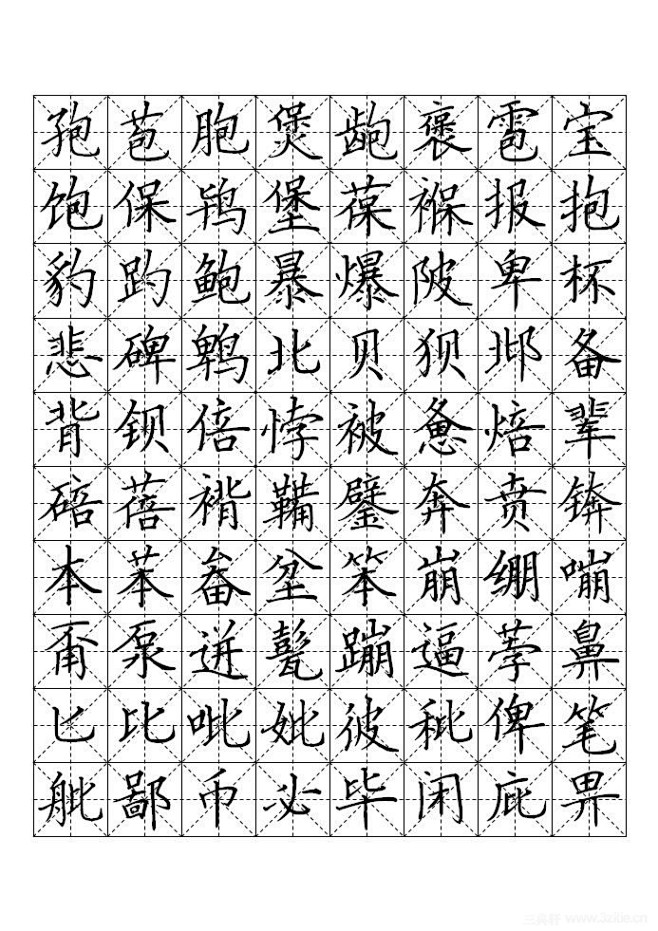 孢苞胞煲龅褒雹宝
饱保鸨堡葆褓报抱
豹趵鲍暴爆陂卑杯
悲碑鹎北贝狈邶备
背钡倍悖被惫焙辈
碚蓓褙鞴鐾奔贲锛
本苯畚坌笨崩绷嘣
甭泵迸甏蹦逼荸鼻
匕比吡妣彼秕俾笔
舭鄙币必毕闭庇畀
www.3zitie.cn